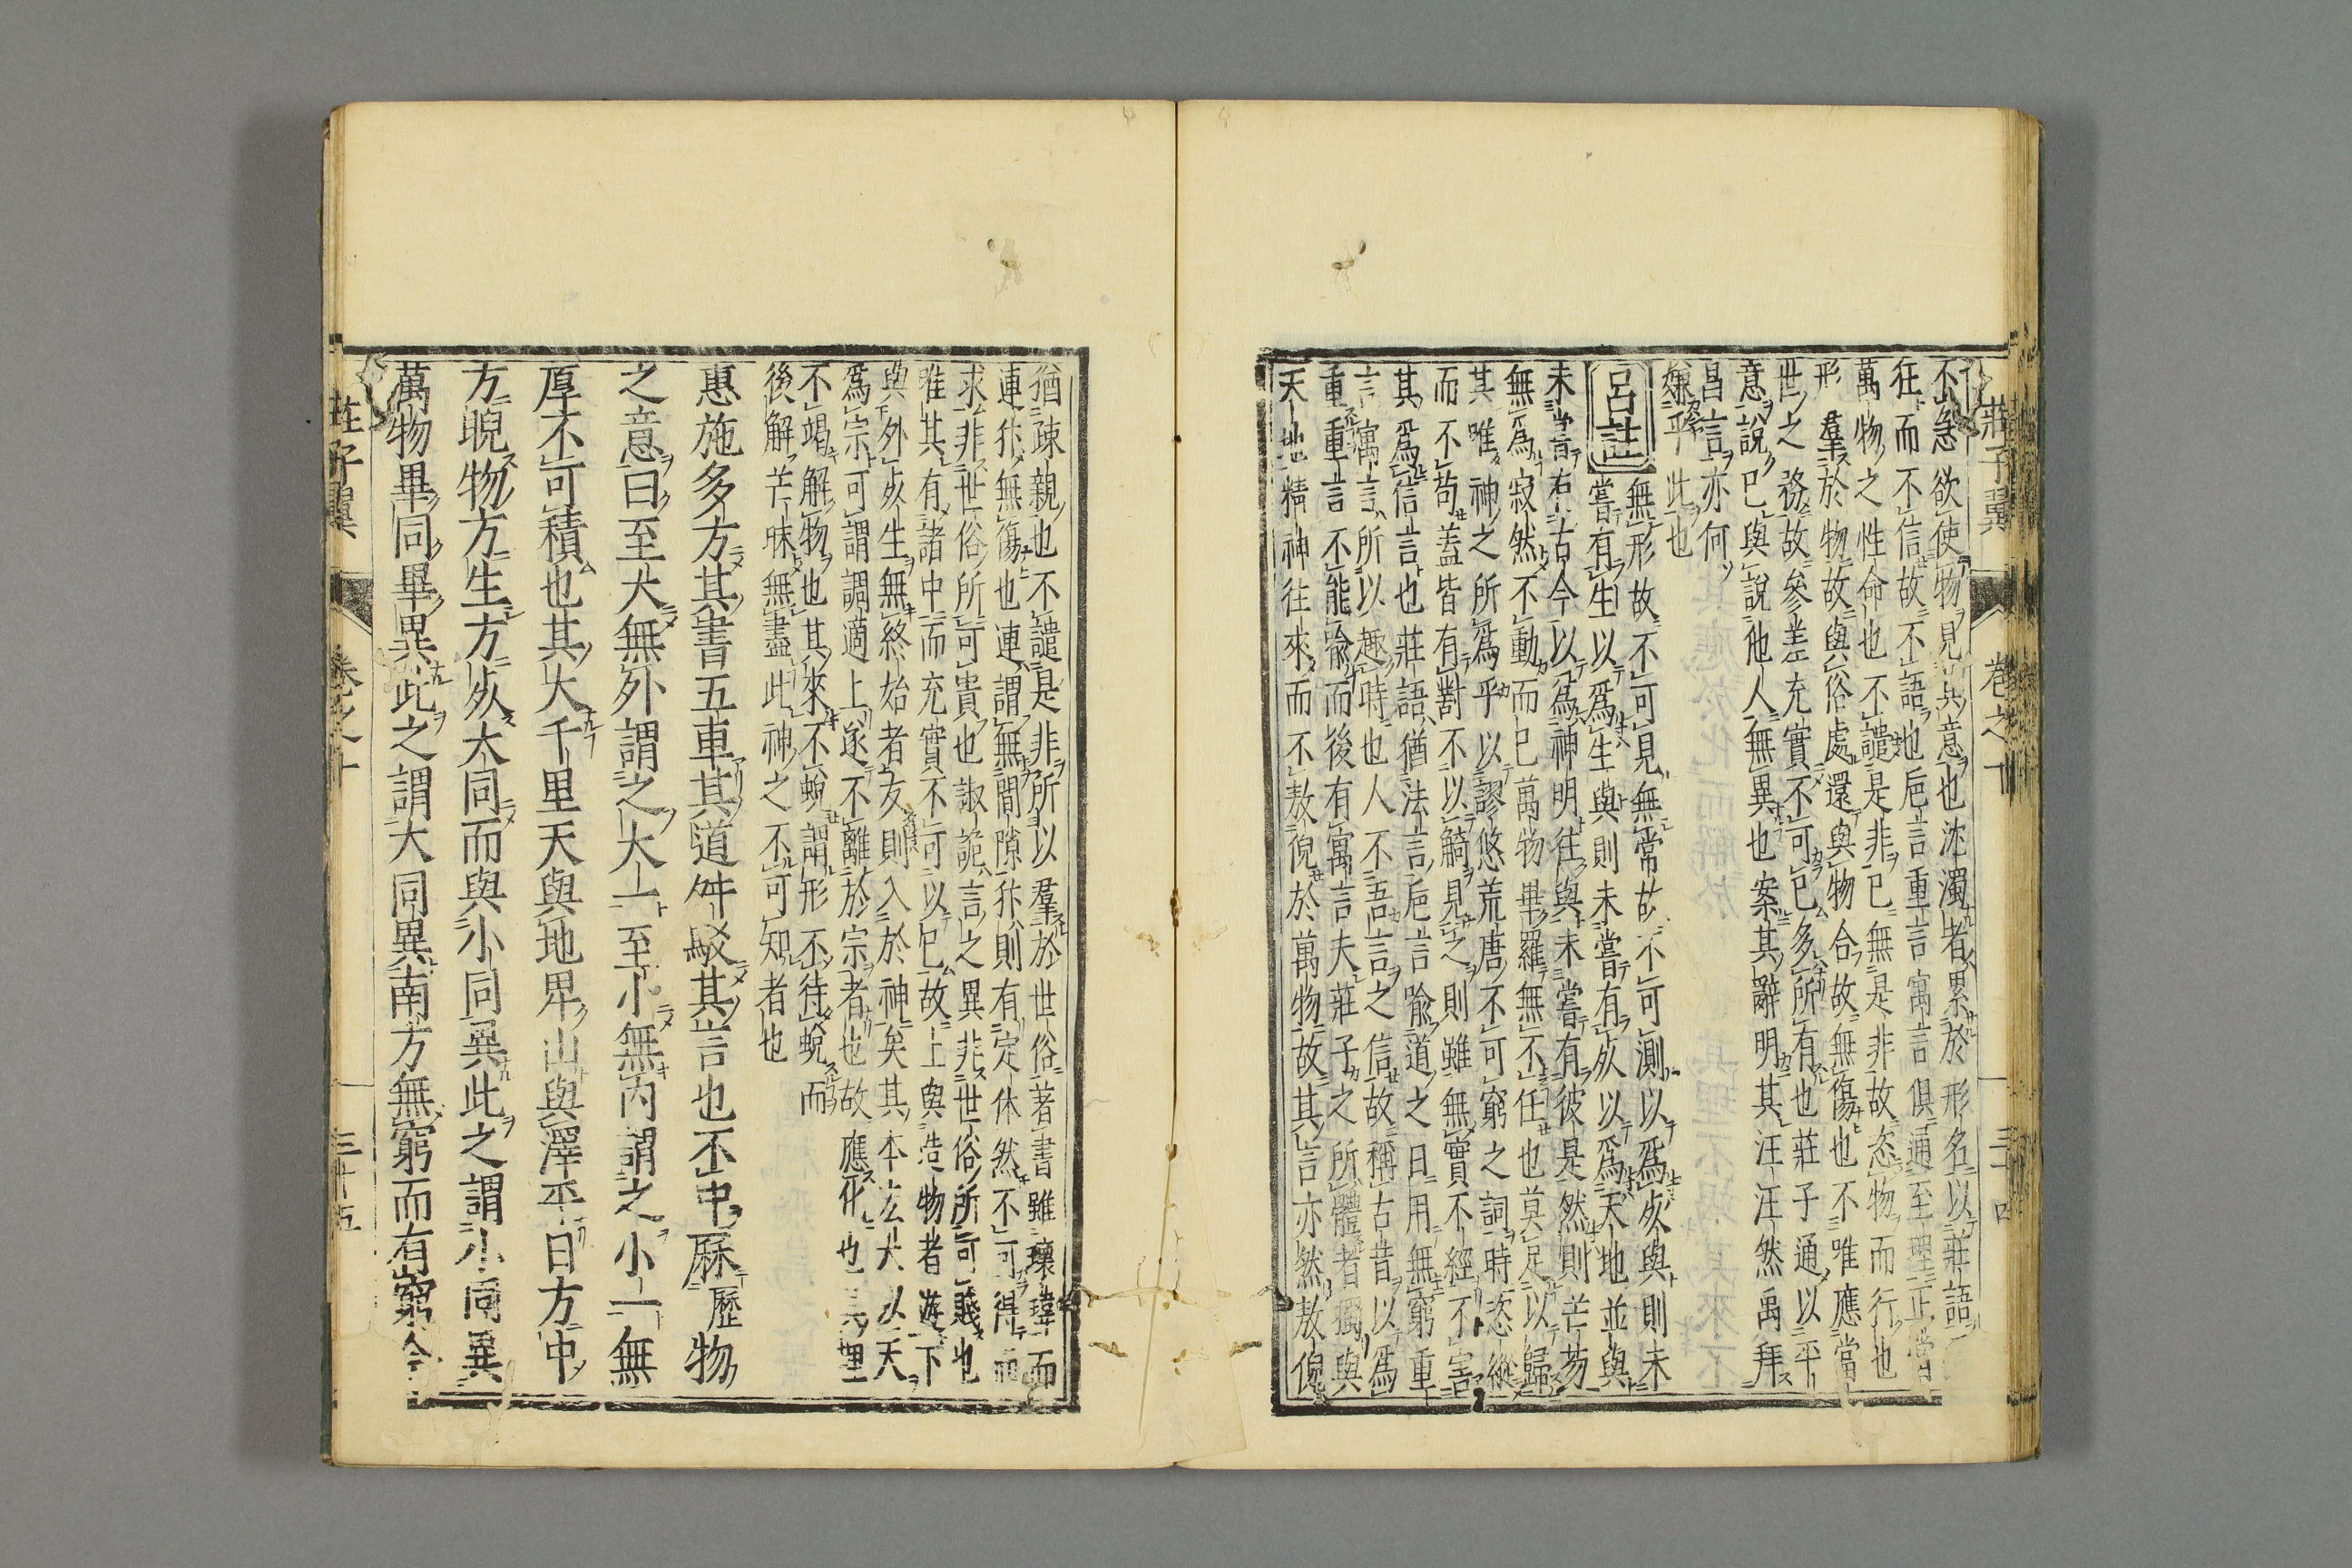 莊子翼 卷之十 三十四
不急欲使物見其意也沈濁者累於形名以莊語
狂而不信故不語也巵言重言寓言俱通至理正當
萬物之性命也不譴是非已無是非故恣物而行也
形羣於物故與俗處還與物合故無傷也不唯應當
世之務故參差充實不可已多所有也莊子通以平
意說已與說他人無異也案其辭明其汪汪然禹拜
昌言亦何
嫌乎此也
呂註 無形故不可見無常故不可測以爲死與則未
嘗有生以爲生與則未嘗有死以爲天地並與
未嘗有古今以爲神明往與未嘗有彼是然則芒芴
無爲寂然不動而已萬物畢羅無不任也莫足以歸
其唯神之所爲乎以謬悠荒唐不可窮之詞時恣縱
而不苟蓋皆有對不以觭見之則雖無實不經不害
其爲信言也莊語猶法言巵言喩道之日用無窮重
言寓言所以趣時也人不吾言之信故稱古昔以爲
重重言不能喩而後有寓言夫莊子之所體者獨與
天地精神往來而不敖倪於萬物故其言亦然敖倪
猶疎親也不譴是非所以羣於世俗著書雖瓌瑋而
連犿無傷也連謂無間隙犿則有定体然不可得而
求非世俗所可貴也諔詭言之異非世俗所可賤也
唯其有諸中而充實不可以已故上與造物者遊下
與外死生無終始者友則入於神矣其本宏大以天
爲宗可謂調適上遂不離於宗者也故應化也其理
不竭解物也其來不蛻謂形不待蛻而
後解芒昧無盡此神之不可知者也
惠施多方其書五車其道舛駁其言也不中厤歷物
之意曰至大無外謂之大一至小無內謂之小一無
厚不可積也其大千里天與地卑山與澤平日方中
方睨物方生方死大同而與小同異此之謂小同異
萬物畢同畢異此之謂大同異南方無窮而有窮今
莊子翼 卷之十 三十五